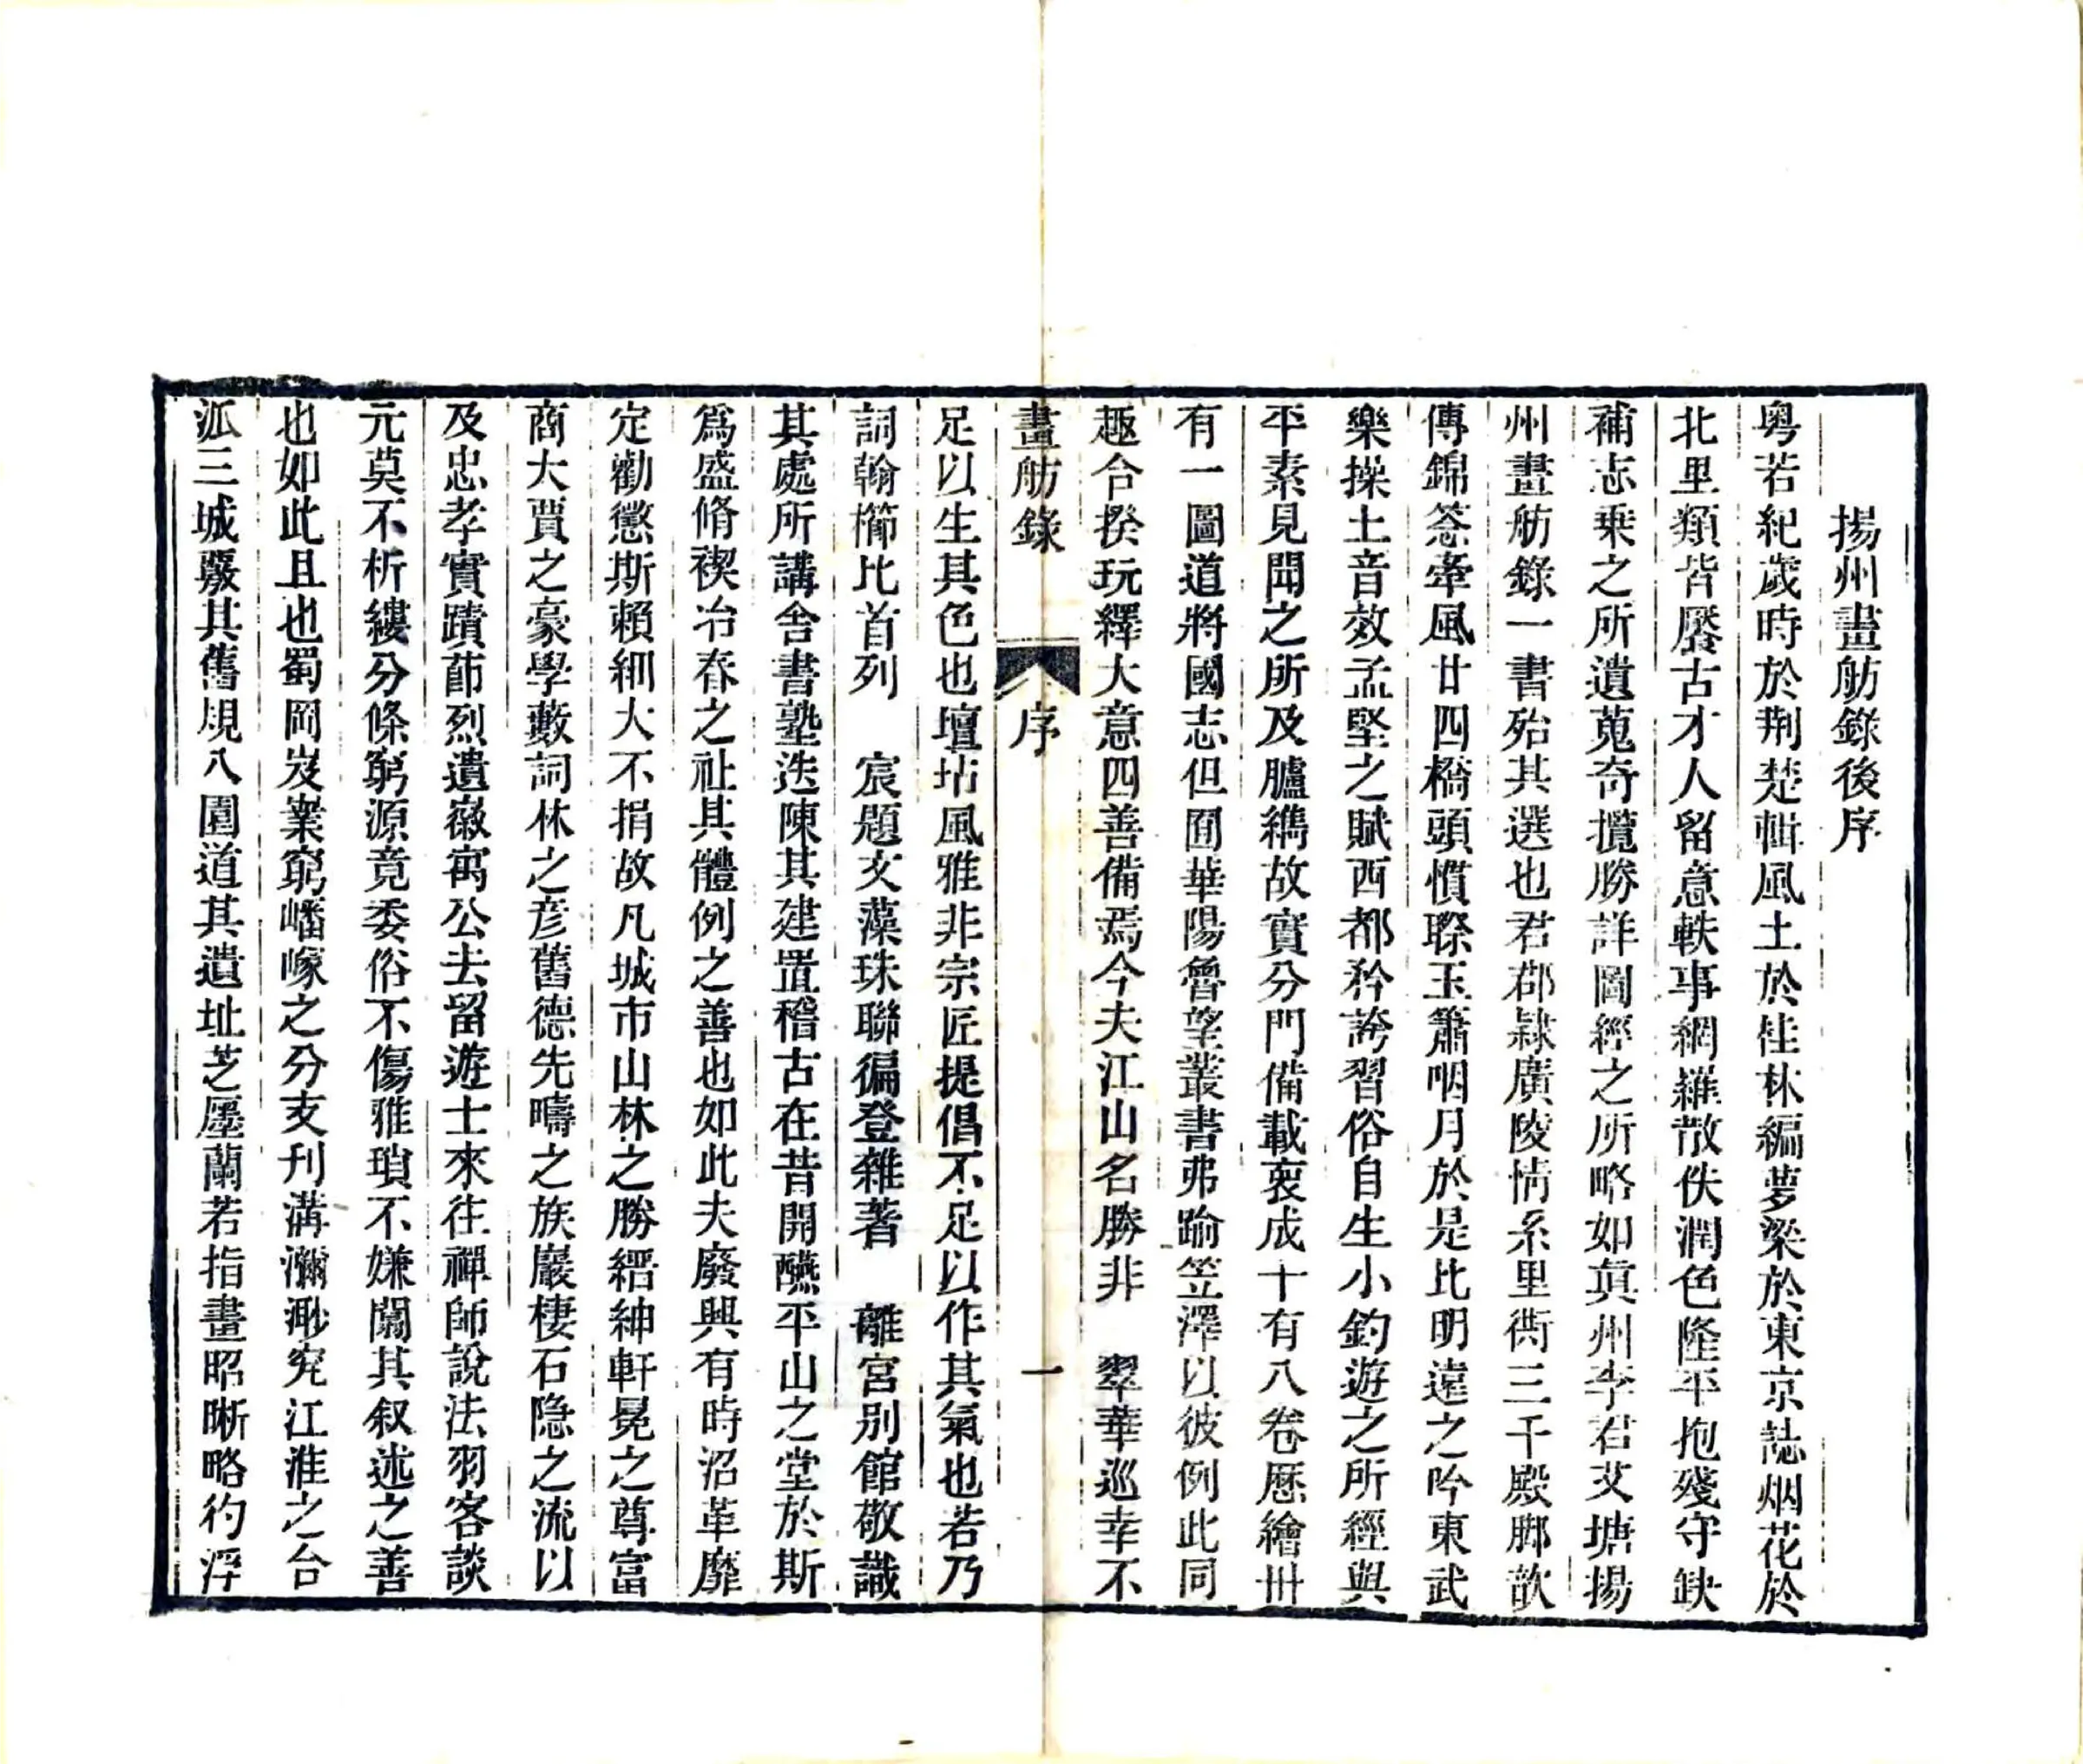 揚州畫舫錄後序
粵若紀歲時於荆楚輯風土於桂林編夢梁於東京誌烟花於
北里類皆饜古才人留意軼事網羅散佚潤色隆平抱殘守缺
補志乘之所遺蒐奇攬勝詳圖經之所略如眞州李君艾塘揚
州畫舫錄一書殆其選也君郡隸廣陵情系里衖三千殿脚歆
傳錦䇲牽風廿四橋頭慣聆玉簫咽月於是比明遠之吟東武
樂操土音效孟堅之賦西都矜誇習俗自生小釣遊之所經與
平素見聞之所及臚纗故實分門備載裒成十有八卷厯繪卅
有一圖道將國志但囿華陽魯望叢書弗踰笠澤以彼例此同
趣合揆玩繹大意四善備焉今夫江山名勝非　翠華巡幸不
畫舫錄　序　一
足以生其色也壇坫風雅非宗匠提倡不足以作其氣也若乃
詞翰櫛比首列　宸題文藻珠聯徧登雜著　離宮別館敬識
其處所講舍書塾迭陳其建置稽古在昔開醼平山之堂於斯
爲盛脩禊冶春之社其體例之善也如此夫廢興有時沿革靡
定勸懲斯賴細大不捐故凡城市山林之勝縉紳軒冕之尊富
商大賈之豪學藪詞林之彥舊德先疇之族巖棲石隱之流以
及忠孝實蹟節烈遺徽寓公去留遊士來往禪師說法羽客談
元莫不析縷分條窮源竟委俗不傷雅瑣不嫌闒其叙述之善
也如此且也蜀岡岌嶪窮嶓冢之分支刋溝瀰渺究江淮之合
派三城覈其舊規八園道其遺址芝廛蘭若指畫昭晰略彴浮